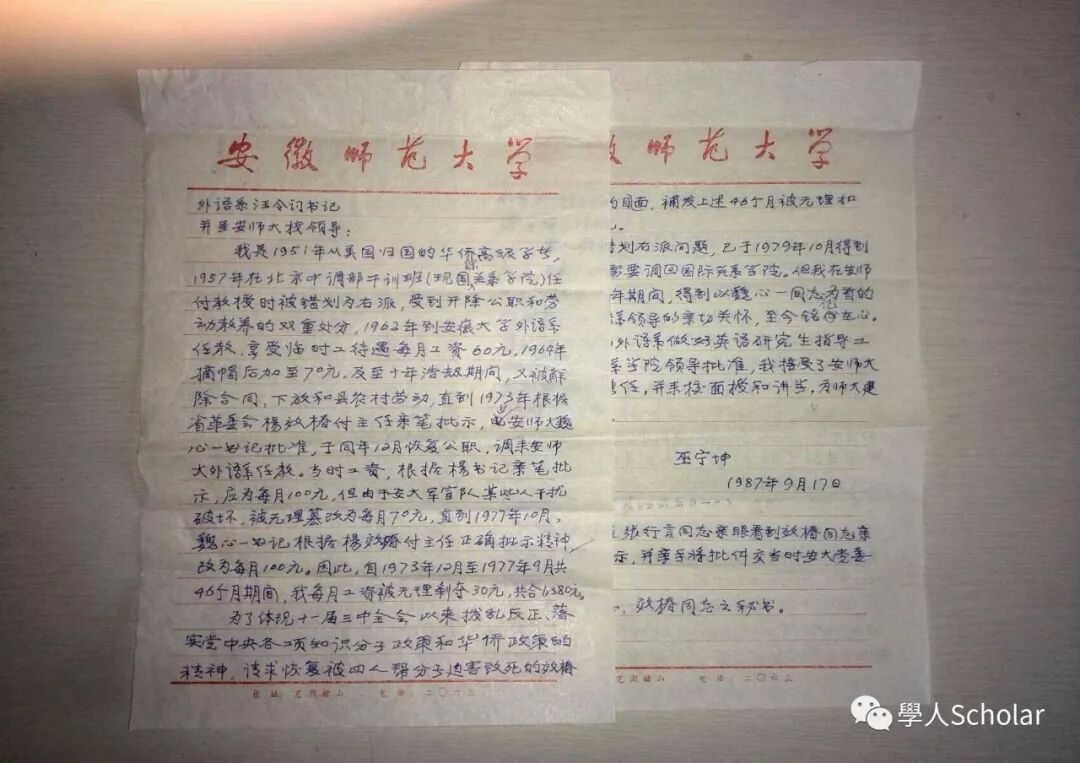 安徽师范大学
外语系汪令订书记
并呈安师大校领导：
我是1951年从美国归国的华侨高级学者，
1957年在北京中调部干训班(现国际关系学院)任
付教授时被错划为右派，受到开除公职和劳
动教养的双重处分，1962年到安徽大学外语系
任教，享受临时工待遇每月工资60元，1964年
摘帽后加至70元，及至十年浩劫期间，又被解
除合同，下放和县农村劳动，直到1973年根据
省革委会楊效椿付主任亲笔批示，由安师大魏
心一书记批准，于同年12月恢复公职，调来安师
大外语系任教。当时工资，根据楊书记亲笔批
示，应为每月100元，但由于安大军宣队某些人干扰
破坏，被无理篡改为每月70元，直到1977年10月，
魏心一书记根据楊效椿付主任正确批示精神
改为每月100元。因此，自1973年12月至1977年9月共
46个月期间，我每月工资被无理剥夺30元，共合1,380元。
为了体现十一届三中全会以来拨乱反正、落
实党中央各项知识分子政策和华侨政策的
精神，请求恢复被四人帮分子迫害致死的效椿
校址：芜湖赭山 电话：二〇六三
师范大学
的目面，補发上述46个月被无理扣
错划右派问题，已于1979年10月得到
需要调回国际关系学院。但我在安师
年期间，得到以魏心一同志为首的
领导的亲切关怀，至今铭记在心。
外语系做好英语研究生指导工
系学院领导批准，我接受了安师大
任，并来校面授和讲学，为师大建
巫宁坤
1987年9月17日
张行言同志亲眼看到效椿同志亲
示，并亲手将批件交当时安大党委
效椿同志之秘书。
芜湖赭山 电话：二〇六三
學人Scholar